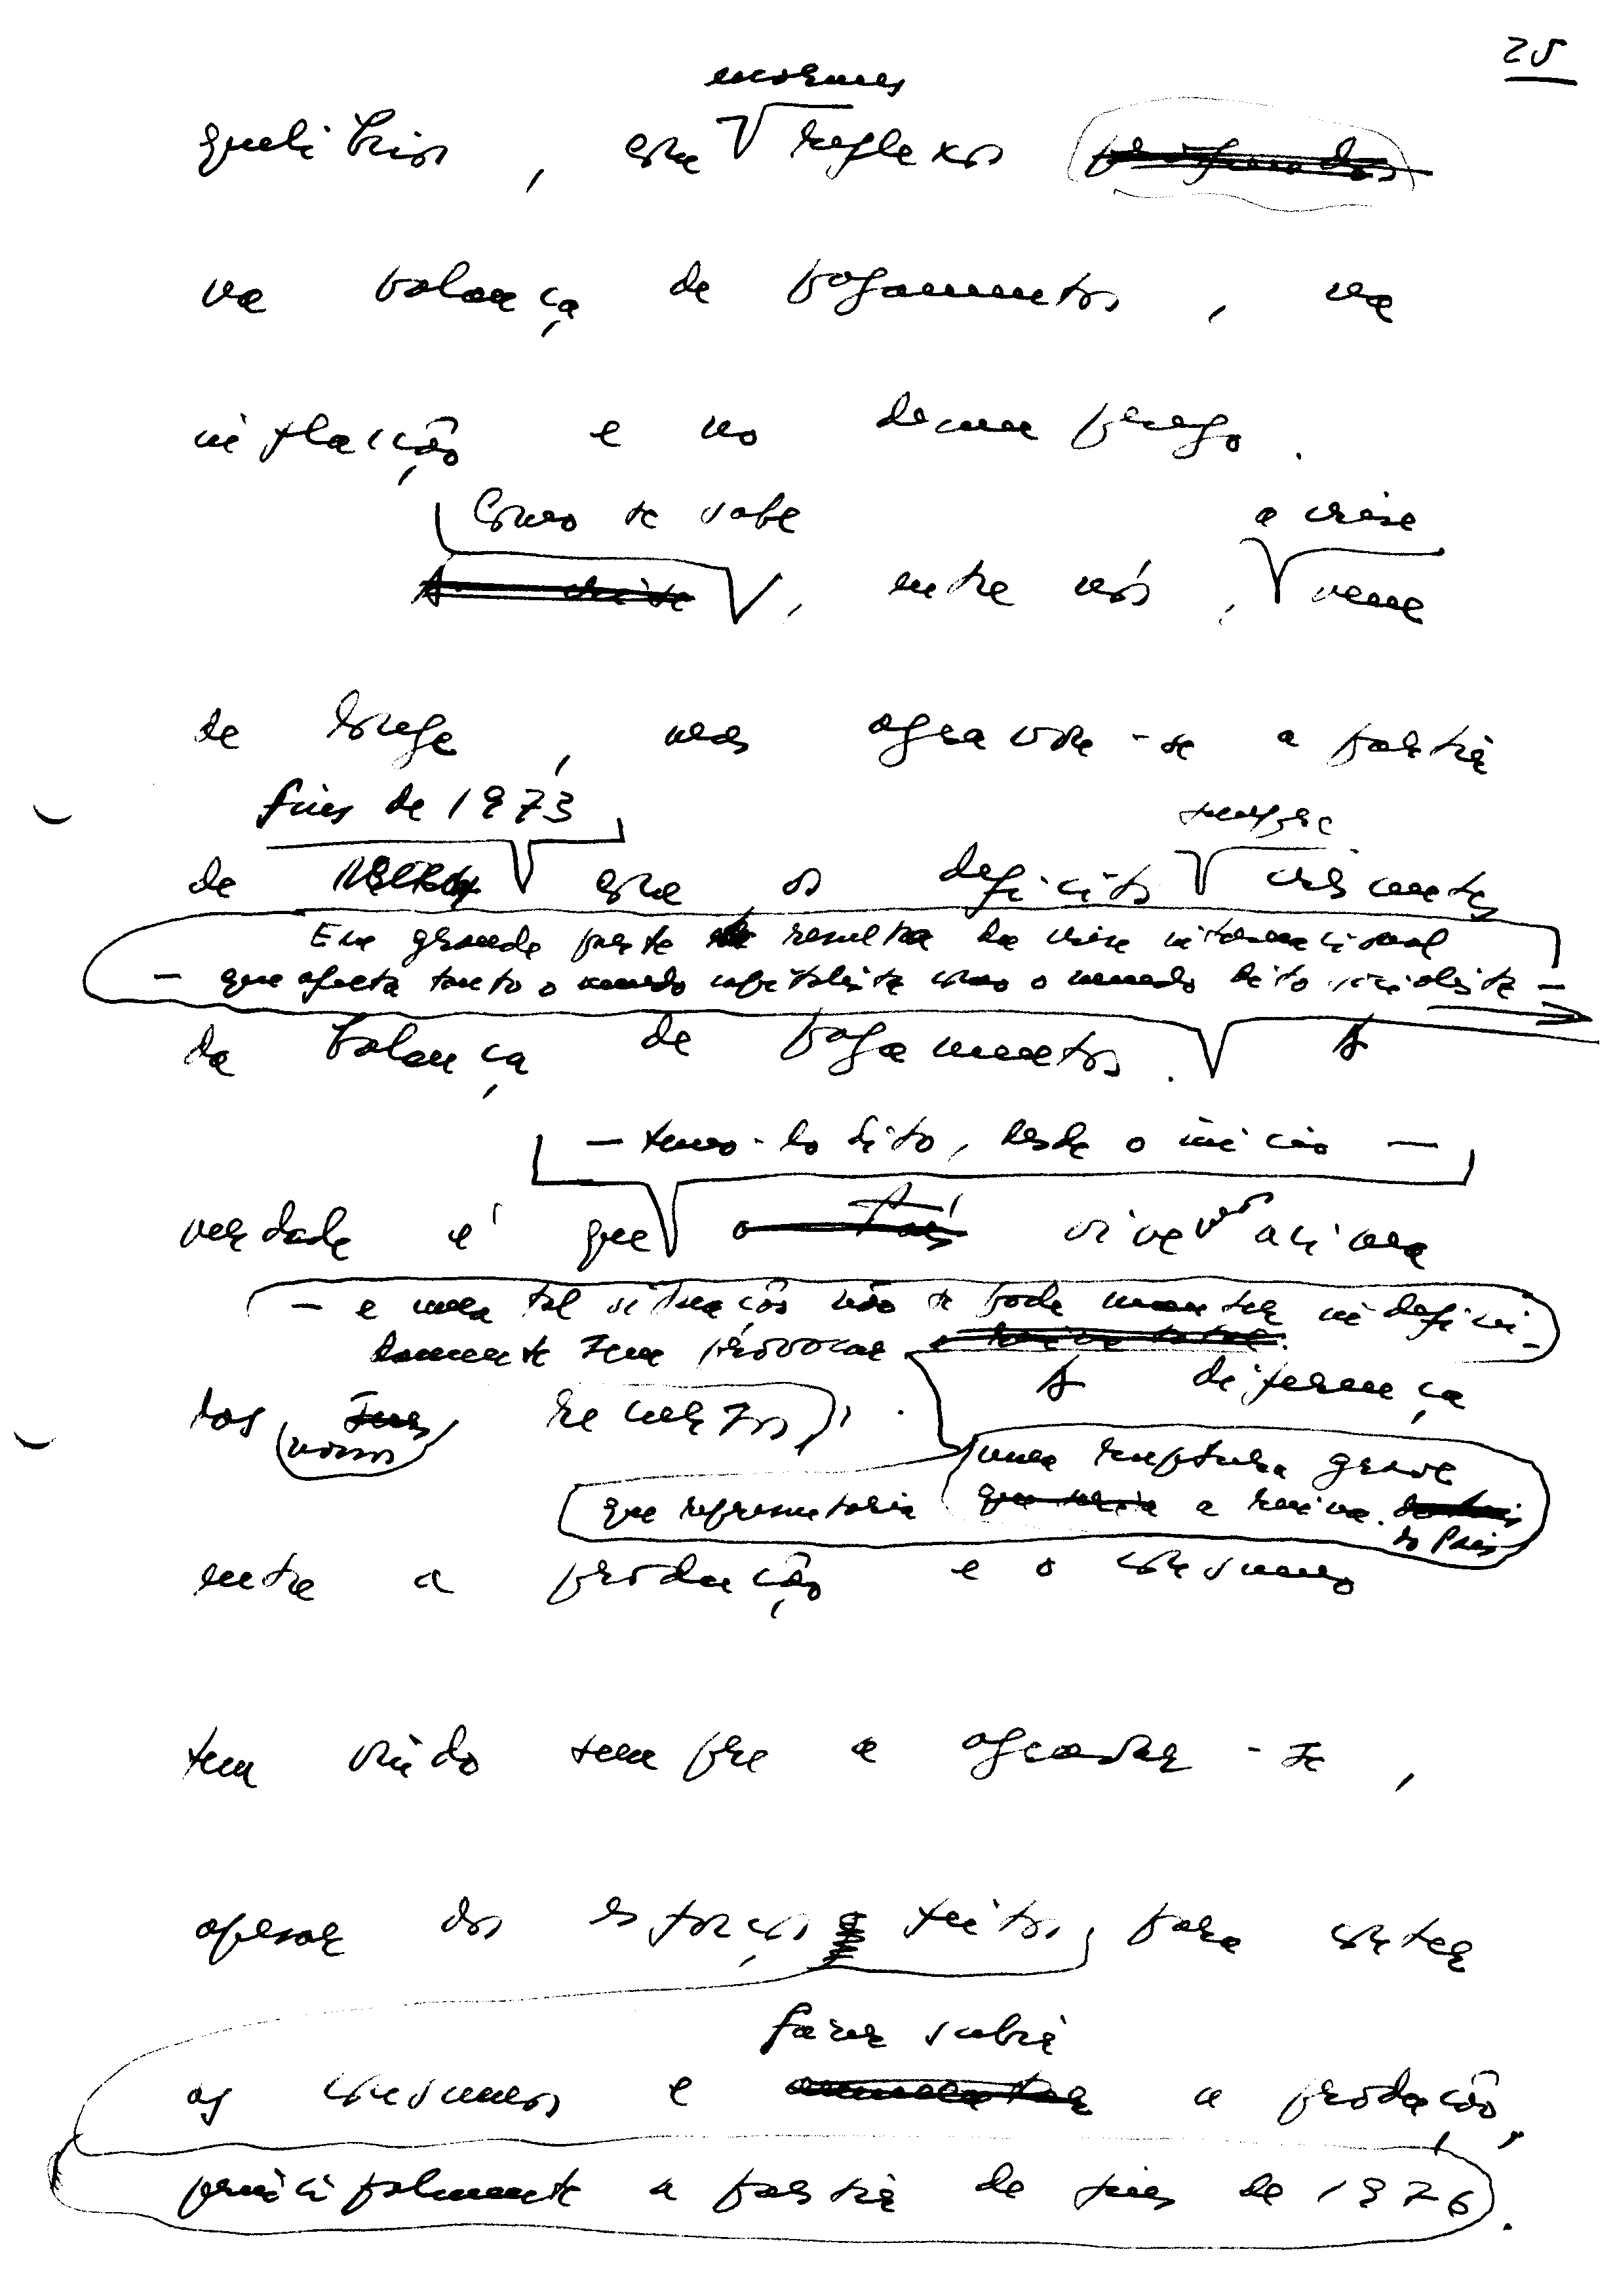 25
enormes
quilíbrios, com reflexos profundos
na balança de pagamentos, na
inflação e no desemprego.
Como se sabe a crise
A crise, entre nós, vem
de longe, mas agravou-se a partir
fins de 1973 sempre
de com os deficits crescentes
Em grande parte resulta da crise internacional
– que afecta tanto o mundo capitalista como o mundo dito socialista –
da balança de pagamentos. A
– temo-lo dito, desde o início –
verdade é que o País vivemos acima
– e uma tal situação não se pode manter indefini-
damente sem provocar a ruína total.
dos seus recursos. A diferença
nossos uma ruptura grave
que representaria que seria a ruína do País
do País
entre a produção e o consumo
tem vindo sempre a agravar-se,
apesar dos esforços feitos para conter
fazer subir
os consumos e aumentar a produção,
principalmente a partir de fins de 1976.